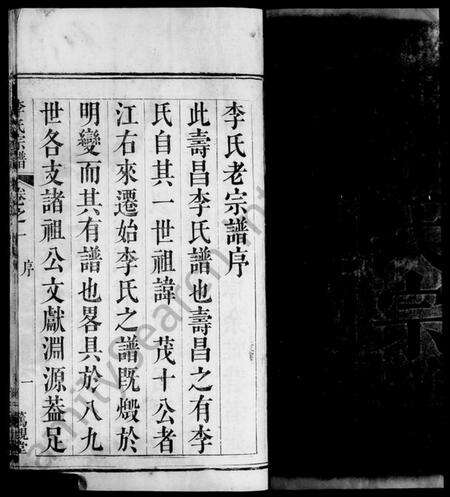 李氏老宗譜序
此壽昌李氏譜也壽昌之有李
氏自其一世祖諱 茂十公者
江右來遷始李氏之譜既燬於
明變而其有譜也畧具於八九
世各支諸祖公文獻淵源葢足
李氏宗譜 卷之一 序 一